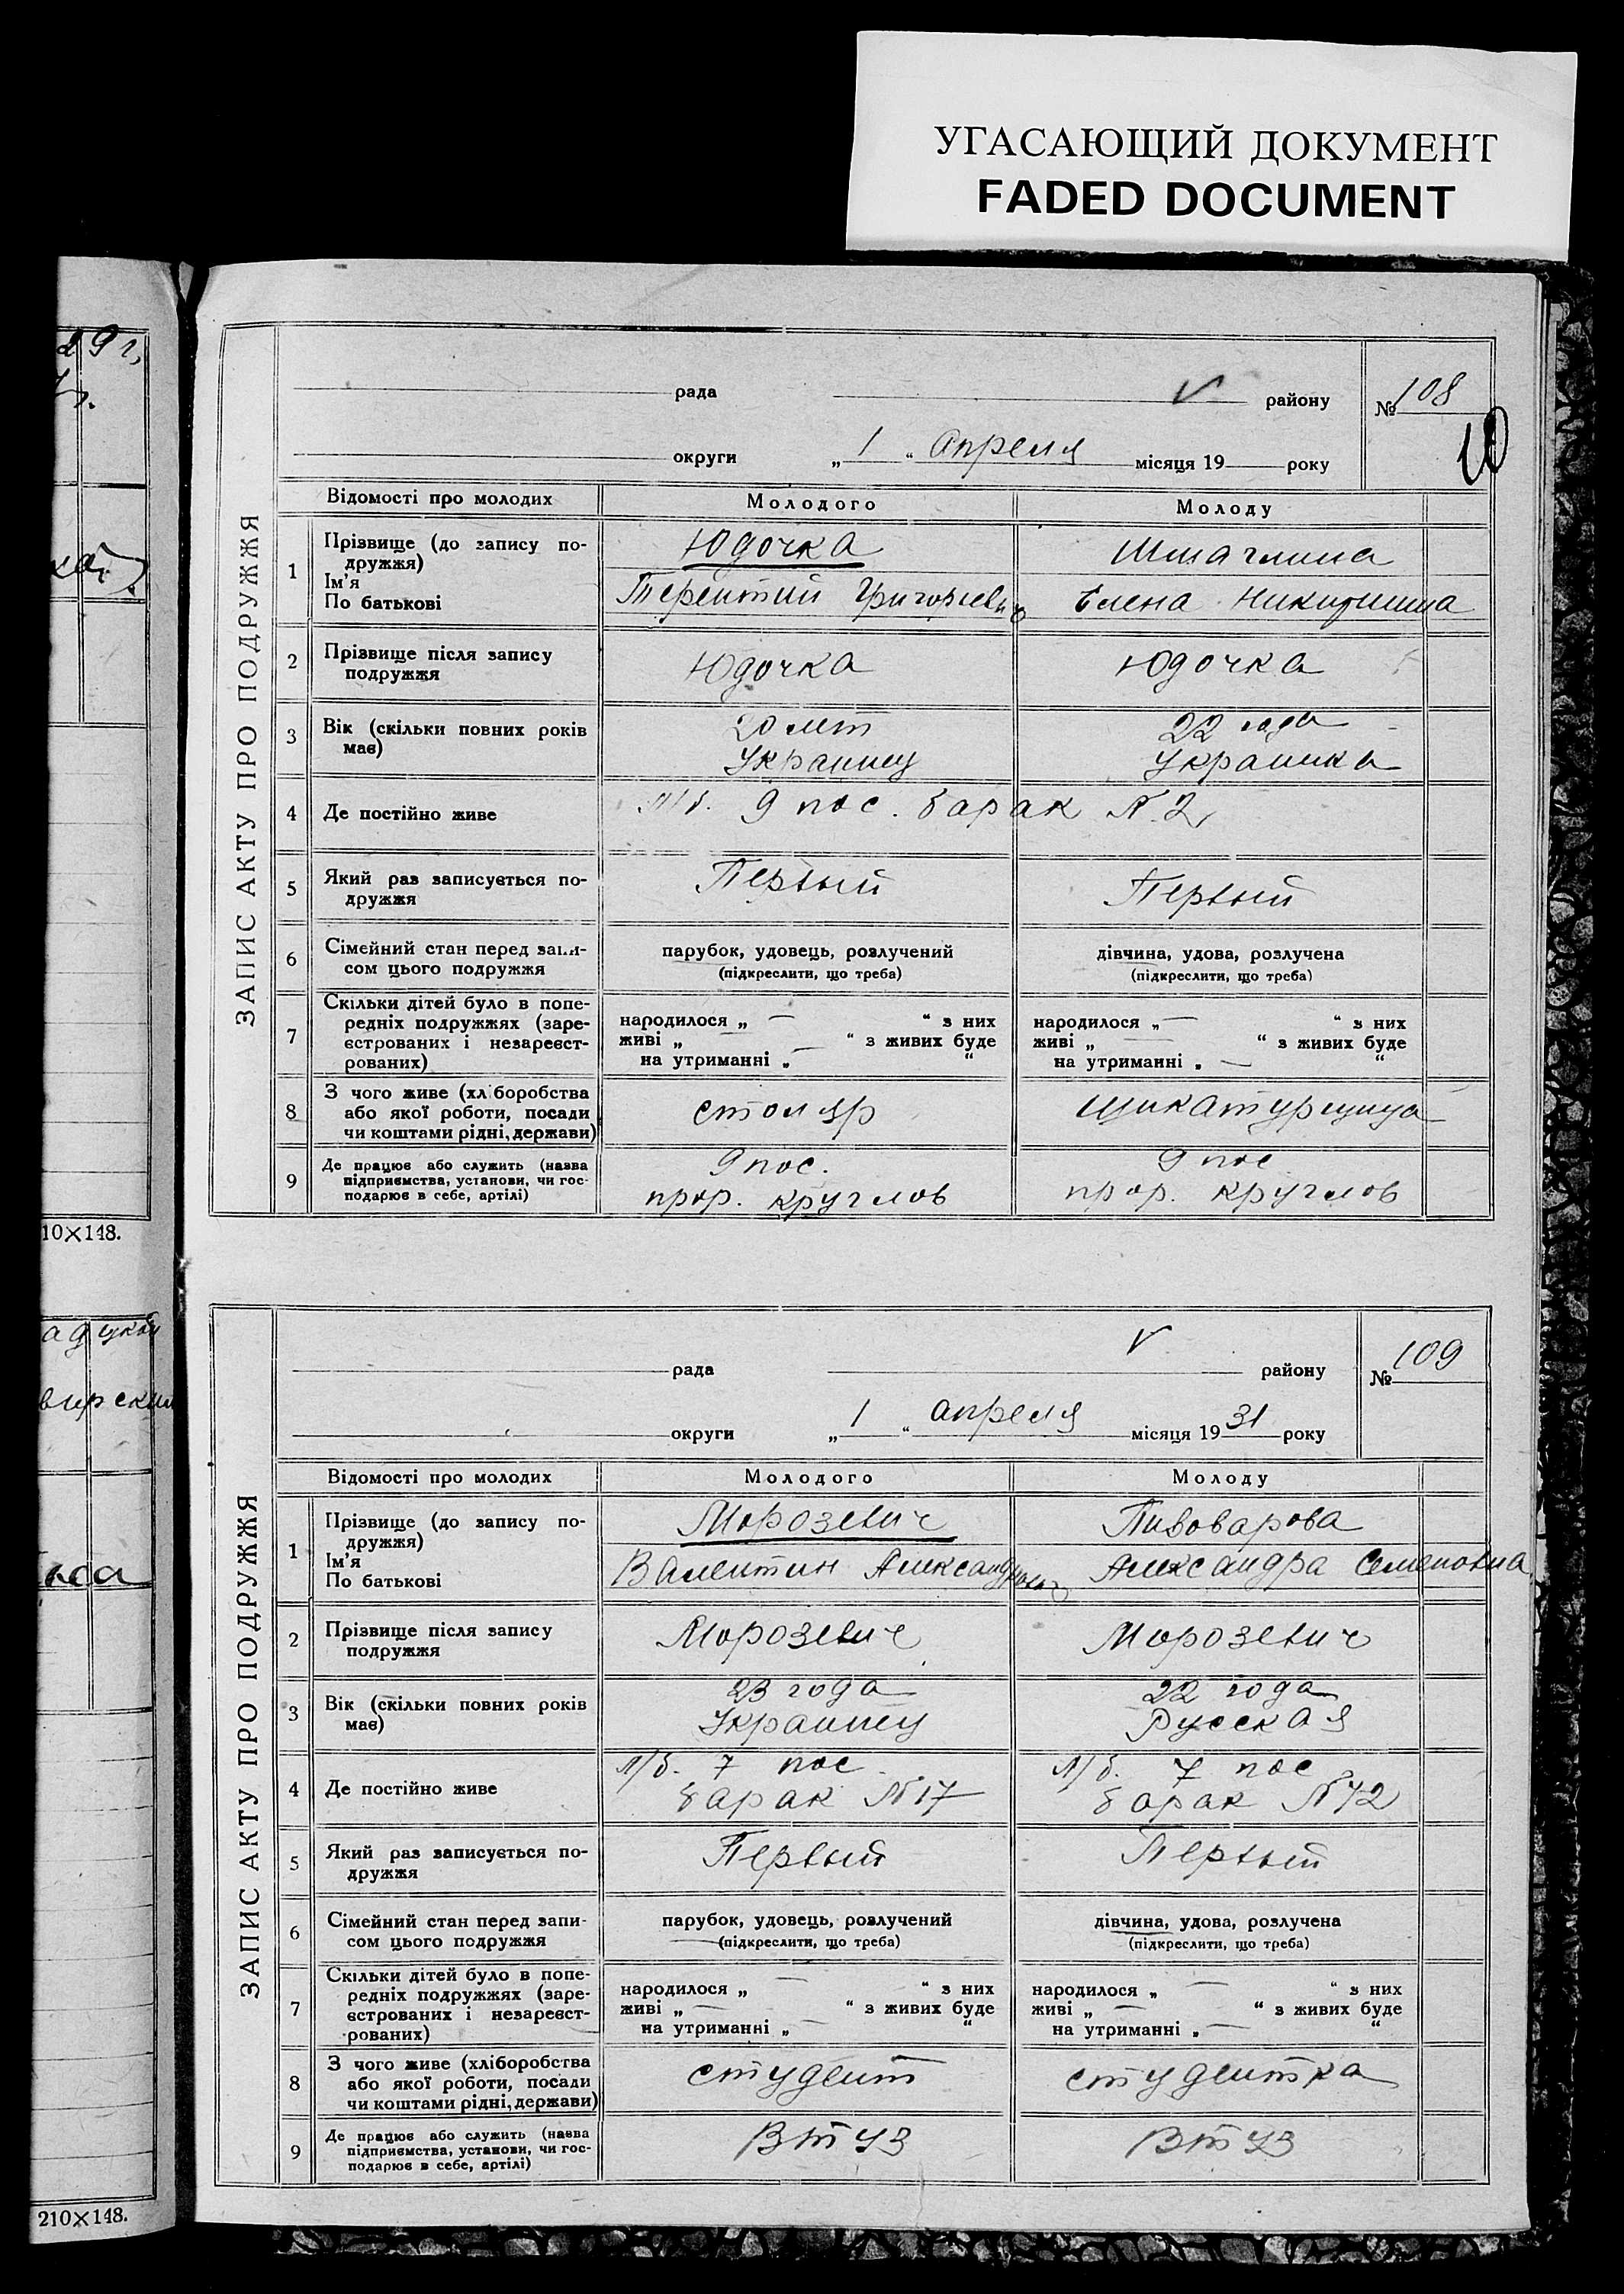 УГАСАЮЩИЙ ДОКУМЕНТ
FADED DOCUMENT
29 г.
10×148.
210×148.
ЗАПИС АКТУ ПРО ПОДРУЖЖЯ
рада V району № 108
10
округи „1“ апреля місяця 19 року
Відомості про молодих Молодого Молоду
1 Прізвище (до запису по-
дружжя)
Ім'я
По батькові
Юдочка
Терентий Григорьевич Елена Никитишна
2 Прізвище після запису
подружжя
Юдочка Юдочка
3 Вік (скільки повних років
має)
20 лет 22 года
Украинец Украинка
4 Де постійно живе 9 пос. барак N. 2
5 Який раз записується по-
дружжя
Первый Первый
6 Сімейний стан перед запи-
сом цього подружжя
парубок, удовець, розлучений дівчина, удова, розлучена
(підкреслити, що треба) (підкреслити, що треба)
7 Скільки дітей було в попе-
редніх подружжях (заре-
єстрованих і незареєст-
рованих)
народилося „ — “ з них народилося „ — “ з них
живі „ — “ з живих буде живі „ — “ з живих буде
на утриманні „ — “ на утриманні „ — “
8 З чого живе (хліборобства
або якої роботи, посади
чи коштами рідні, держави)
столяр щикатурщица
9 Де працює або служить (назва
підприємства, установи, чи гос-
подарює в себе, артілі)
9 пос. 9 пос
прор. Круглов прор. Круглов
ЗАПИС АКТУ ПРО ПОДРУЖЖЯ
рада V району № 109
округи „1“ апреля місяця 1931 року
Відомості про молодих Молодого Молоду
1 Прізвище (до запису по-
дружжя)
Ім'я
По батькові
Морозевич Пивоварова
Валентин Александрович Александра Семеновна
2 Прізвище після запису
подружжя
Морозевич Морозевич
3 Вік (скільки повних років
має)
23 года 22 года
Украинец Русская
4 Де постійно живе
л/б. 7 пос. л/б. 7 пос
барак N 17 барак N 72
5 Який раз записується по-
дружжя
Первый Первый
6 Сімейний стан перед запи-
сом цього подружжя
парубок, удовець, розлучений дівчина, удова, розлучена
(підкреслити, що треба) (підкреслити, що треба)
7 Скільки дітей було в попе-
редніх подружжях (заре-
єстрованих і незареєст-
рованих)
народилося „ — “ з них народилося „ — “ з них
живі „ — “ з живих буде живі „ — “ з живих буде
на утриманні „ — “ на утриманні „ — “
8 З чого живе (хліборобства
або якої роботи, посади
чи коштами рідні, держави)
студент студентка
9 Де працює або служить (назва
підприємства, установи, чи гос-
подарює в себе, артілі)
ВТУЗ ВТУЗ